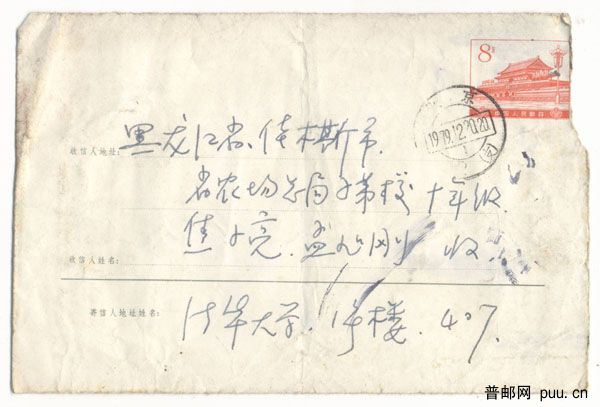 8分
中国人民邮政
京
1979.12.20.20
收信人地址:
黑龙江省佳木斯市
省农场总局子弟校 十年级
焦小亮.孟 刚 收
收信人姓名:
寄信人地址姓名:
清华大学.1号楼.407.
普邮网 puu.cn